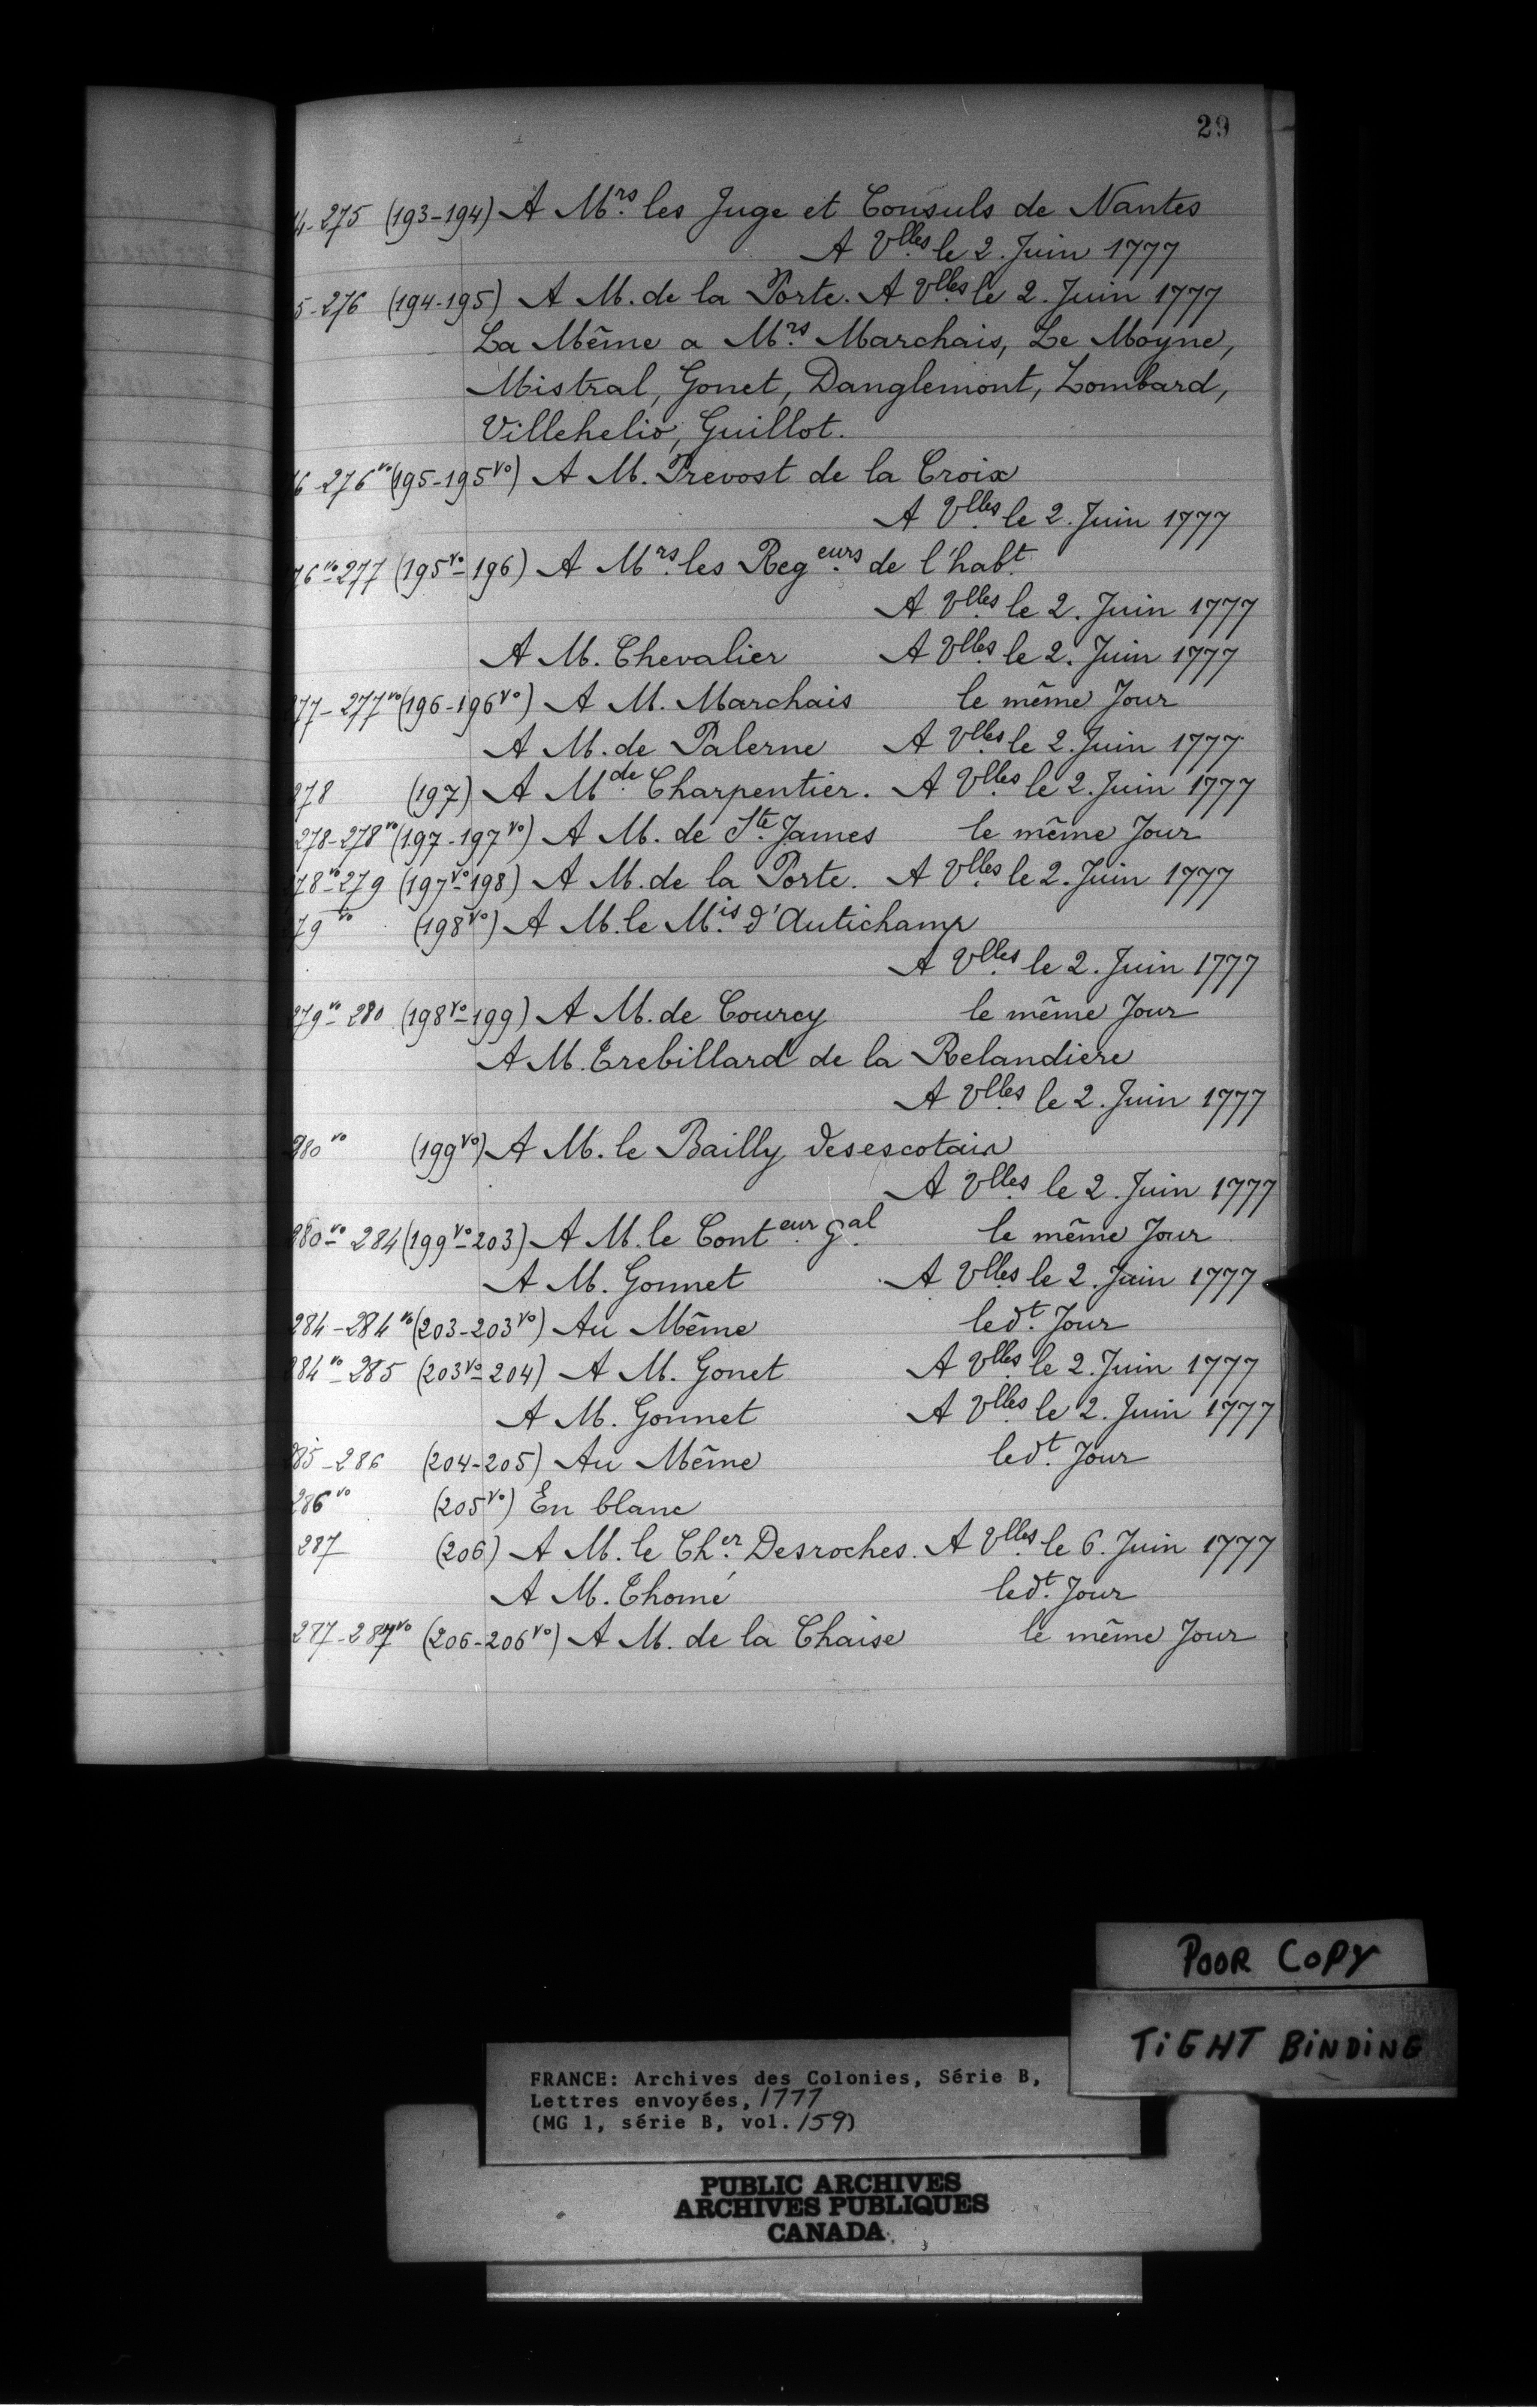 29
4-275 (193-194) A Mrs. les Juge et Consuls de Nantes
A Vlles. le 2. Juin 1777
5-276 (194-195) A M. de la Porte. A Vlles. le 2. Juin 1777
La Même a Mrs. Marchais, Le Moyne,
Mistral, Gonet, Danglemont, Lombard,
Villehelio, Guillot.
6-276vo (195-195vo) A M. Prevost de la Croix
A Vlles. le 2. Juin 1777
76vo-277 (195vo-196) A Mrs. les Regeurs. de l'habt.
A Vlles. le 2. Juin 1777
A M. Chevalier A Vlles. le 2. Juin 1777
77-277vo (196-196vo) A M. Marchais le même Jour
A M. de Palerne A Vlles. le 2. Juin 1777
278 (197) A Mde. Charpentier. A Vlles. le 2. Juin 1777
278-278vo (197-197vo) A M. de Ste. James le même Jour
78vo-279 (197vo-198) A M. de la Porte. A Vlles. le 2. Juin 1777
79vo (198vo) A M. le Mis. d'Autichamp
A Vlles. le 2. Juin 1777
279vo-280 (198vo-199) A M. de Courcy le même Jour
A M. Trebillard de la Relandiere
A Vlles. le 2. Juin 1777
280vo (199vo) A M. le Bailly desescotais
A Vlles. le 2. Juin 1777
280vo-284 (199vo-203) A M. le Conteur. Gal. le même Jour
A M. Gonnet A Vlles. le 2. Juin 1777
284-284vo (203-203vo) Au Même ledt. Jour
284vo-285 (203vo-204) A M. Gonet A Vlles. le 2. Juin 1777
A M. Gonnet A Vlles. le 2. Juin 1777
285-286 (204-205) Au Même ledt. Jour
286vo (205vo) En blanc
287 (206) A M. le Cher. Desroches. A Vlles. le 6. Juin 1777
A M. Thomé ledt. Jour
287-287vo (206-206vo) A M. de la Chaise le même Jour
POOR COPY
TiGHT BiNDiNG
FRANCE: Archives des Colonies, Série B,
Lettres envoyées, 1777
(MG 1, série B, vol. 159)
PUBLIC ARCHIVES
ARCHIVES PUBLIQUES
CANADA